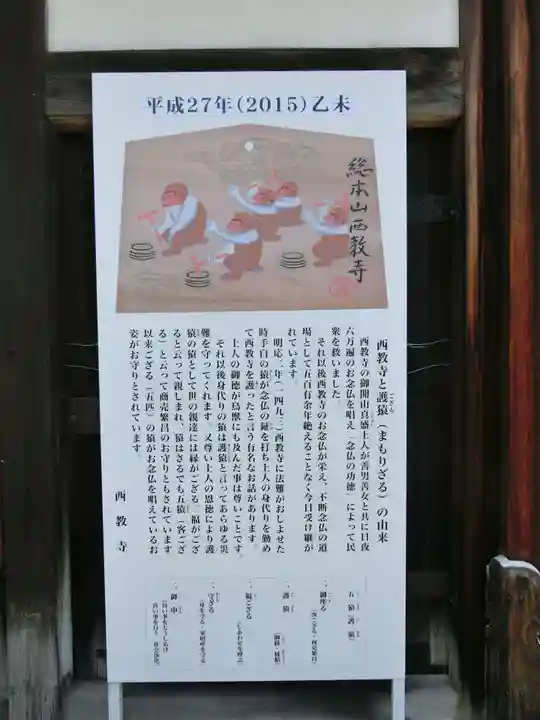 平成27年(2015)乙未
総本山西教寺
西教寺と護猿(まもりざる)の由来
西教寺の御開山真盛上人が善男善女と共に日夜
六万遍のお念仏を唱え「念仏の功徳」によって民
衆を救いました。
それ以後西教寺のお念仏が栄え、不断念仏の道
場として五百有余年絶えることなく今日受け継が
れています。
明応二年(一四九三)西教寺に法難がおしよせた
時手白の猿が念仏の鉦を打ち上人の身代りを勤め
て西教寺を護ったと言う有名なお話があります。
上人の御徳が鳥獣にも及んだ事は尊いことです。
それ以後身代りの猿は護猿と言ってあらゆる災
難を守ってくれます。又尊い上人の恩徳により護
猿の猿として世の親達には縁がござる「福がござ
ると云って親しまれ、猿はさるでも五猿(客ござ
る)と云って商売繁昌のお守りともされています
以来ござる(五匹)の猿がお念仏を唱えているお
姿がお守りとされています。
西教寺
五猿(護猿)
一、御座る
一、護猿
一、福ござる
一、御申